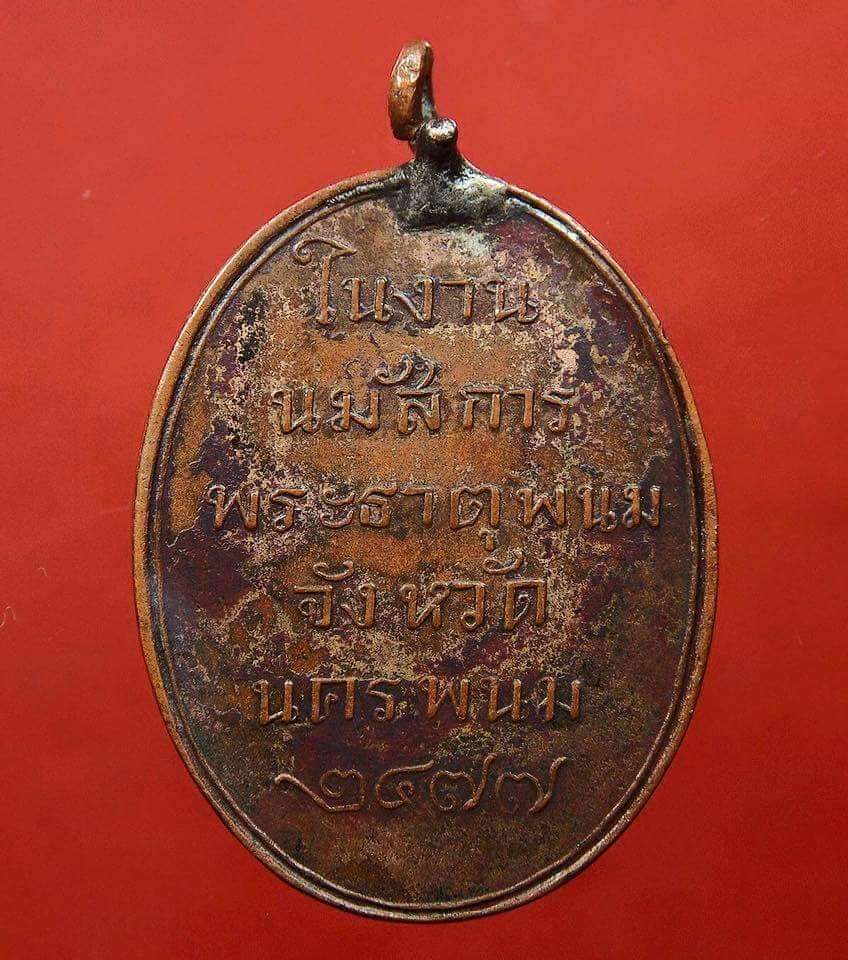 ในงาน
นมัสการ
พระธาตุพนม
จังหวัด
นครพนม
๒๔๗๗